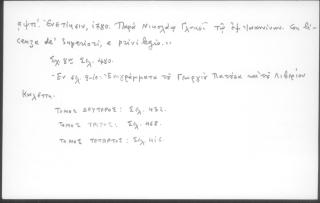 αψπ'. Ἐνετίησιν, 1780. Παρὰ Νικολάῳ Γλυκεῖ τῷ ἐξ Ἰωαννίνων. Con li-
cenza de' Superiori, e privilegio.
Σχ. 8ον Σελ. 480.
Ἐν σελ. Ἐπιγράμματα τὸ Γεωργίου καὶ τὸ Λιβερίου
Κωλέττη.
ΤΟΜΟΣ ΔΕΥΤΕΡΟΣ: Σελ. 432.
ΤΟΜΟΣ ΤΡΙΤΟΣ: Σελ. 468.
ΤΟΜΟΣ ΤΕΤΑΡΤΟΣ: Σελ. 416.